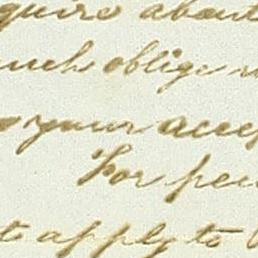 quire about
much oblige
your accep
For pecu
t apply to